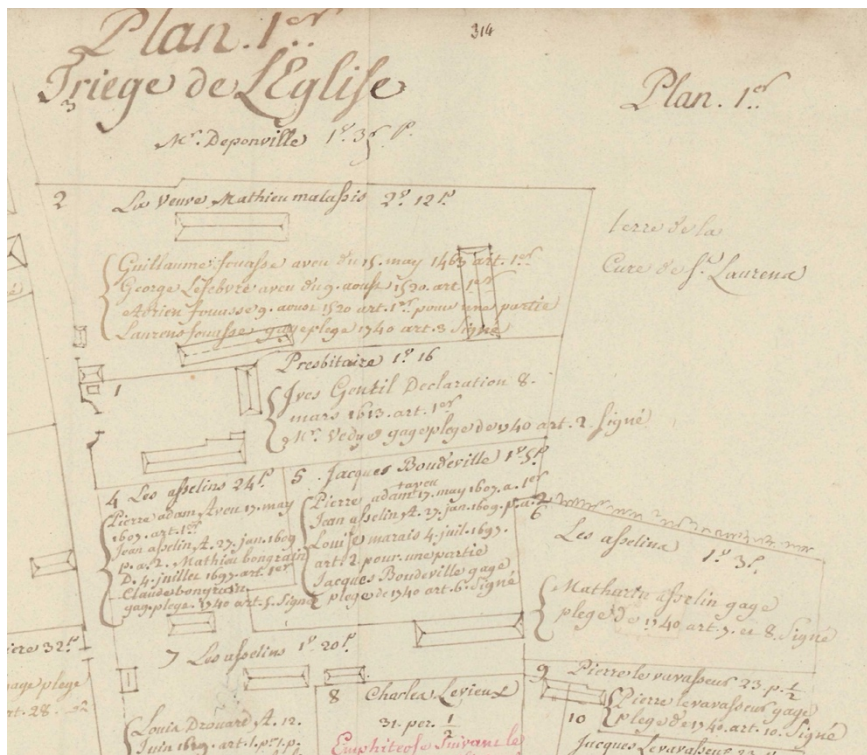 Plan. 1er.
314
Triege de L'Eglise
3
Plan. 1er.
Mr. Deponville 1a. 3p.
2 La Veuve Mathieu malassis 2a. 12p
terre de la
Cure de St. Laurens
Guillaume fouasse aveu du 15. may 1463 art. 1er
George Lefebvre aveu du 9. aoust 1520. art 1er
Adrien fouasse 9. aoust 1520 art. 1er. pour une partie
Laurens fouasse gage plege 1740 art. 3 Signé
Presbitaire 1a. 16
1
Yves Gentil Declaration 8.
mars 1613. art. 1er
gage plege de 1740 art. 2. Signé
4 Les asselins 24p
Pierre adam Aveu 17. may
1607. art. 1er
Jean asselin A. 27. jan. 1609
p. a. 2. Mathieu bongrain
D. 4. juillet 1697. art. 1er
Claude bongrain
gag. plege. 1740 art. 5. Signé
5 Jacques Boudeville 1a. 5p.
Pierre adam aveu 17. may 1607. a. 1er
Jean asselin A. 27. jan. 1609. p. a. 2
Louise marais 4. juil. 1697.
art. 2 pour une partie
Jacques Boudeville gage
plege de 1740 art. 6. Signé
6
Les asselins
1a. 3p.
Mathurin asselin gage
plege de 1740 art. 7. et 8. Signé
32p
gage plege
art. 28.
7 Les asselins 1a. 20p.
Louis Drouard A. 12.
Juin 1609. art. 1. pr. 1. p.
8 Charles Levieux
31. per. 1/2
Emphiteose Suivant le
9 Pierre levavasseur 23. p. 1/2
Pierre levavasseur gage
plege de 1740. art. 10. Signé
10
Jacques Levavasseur 23.